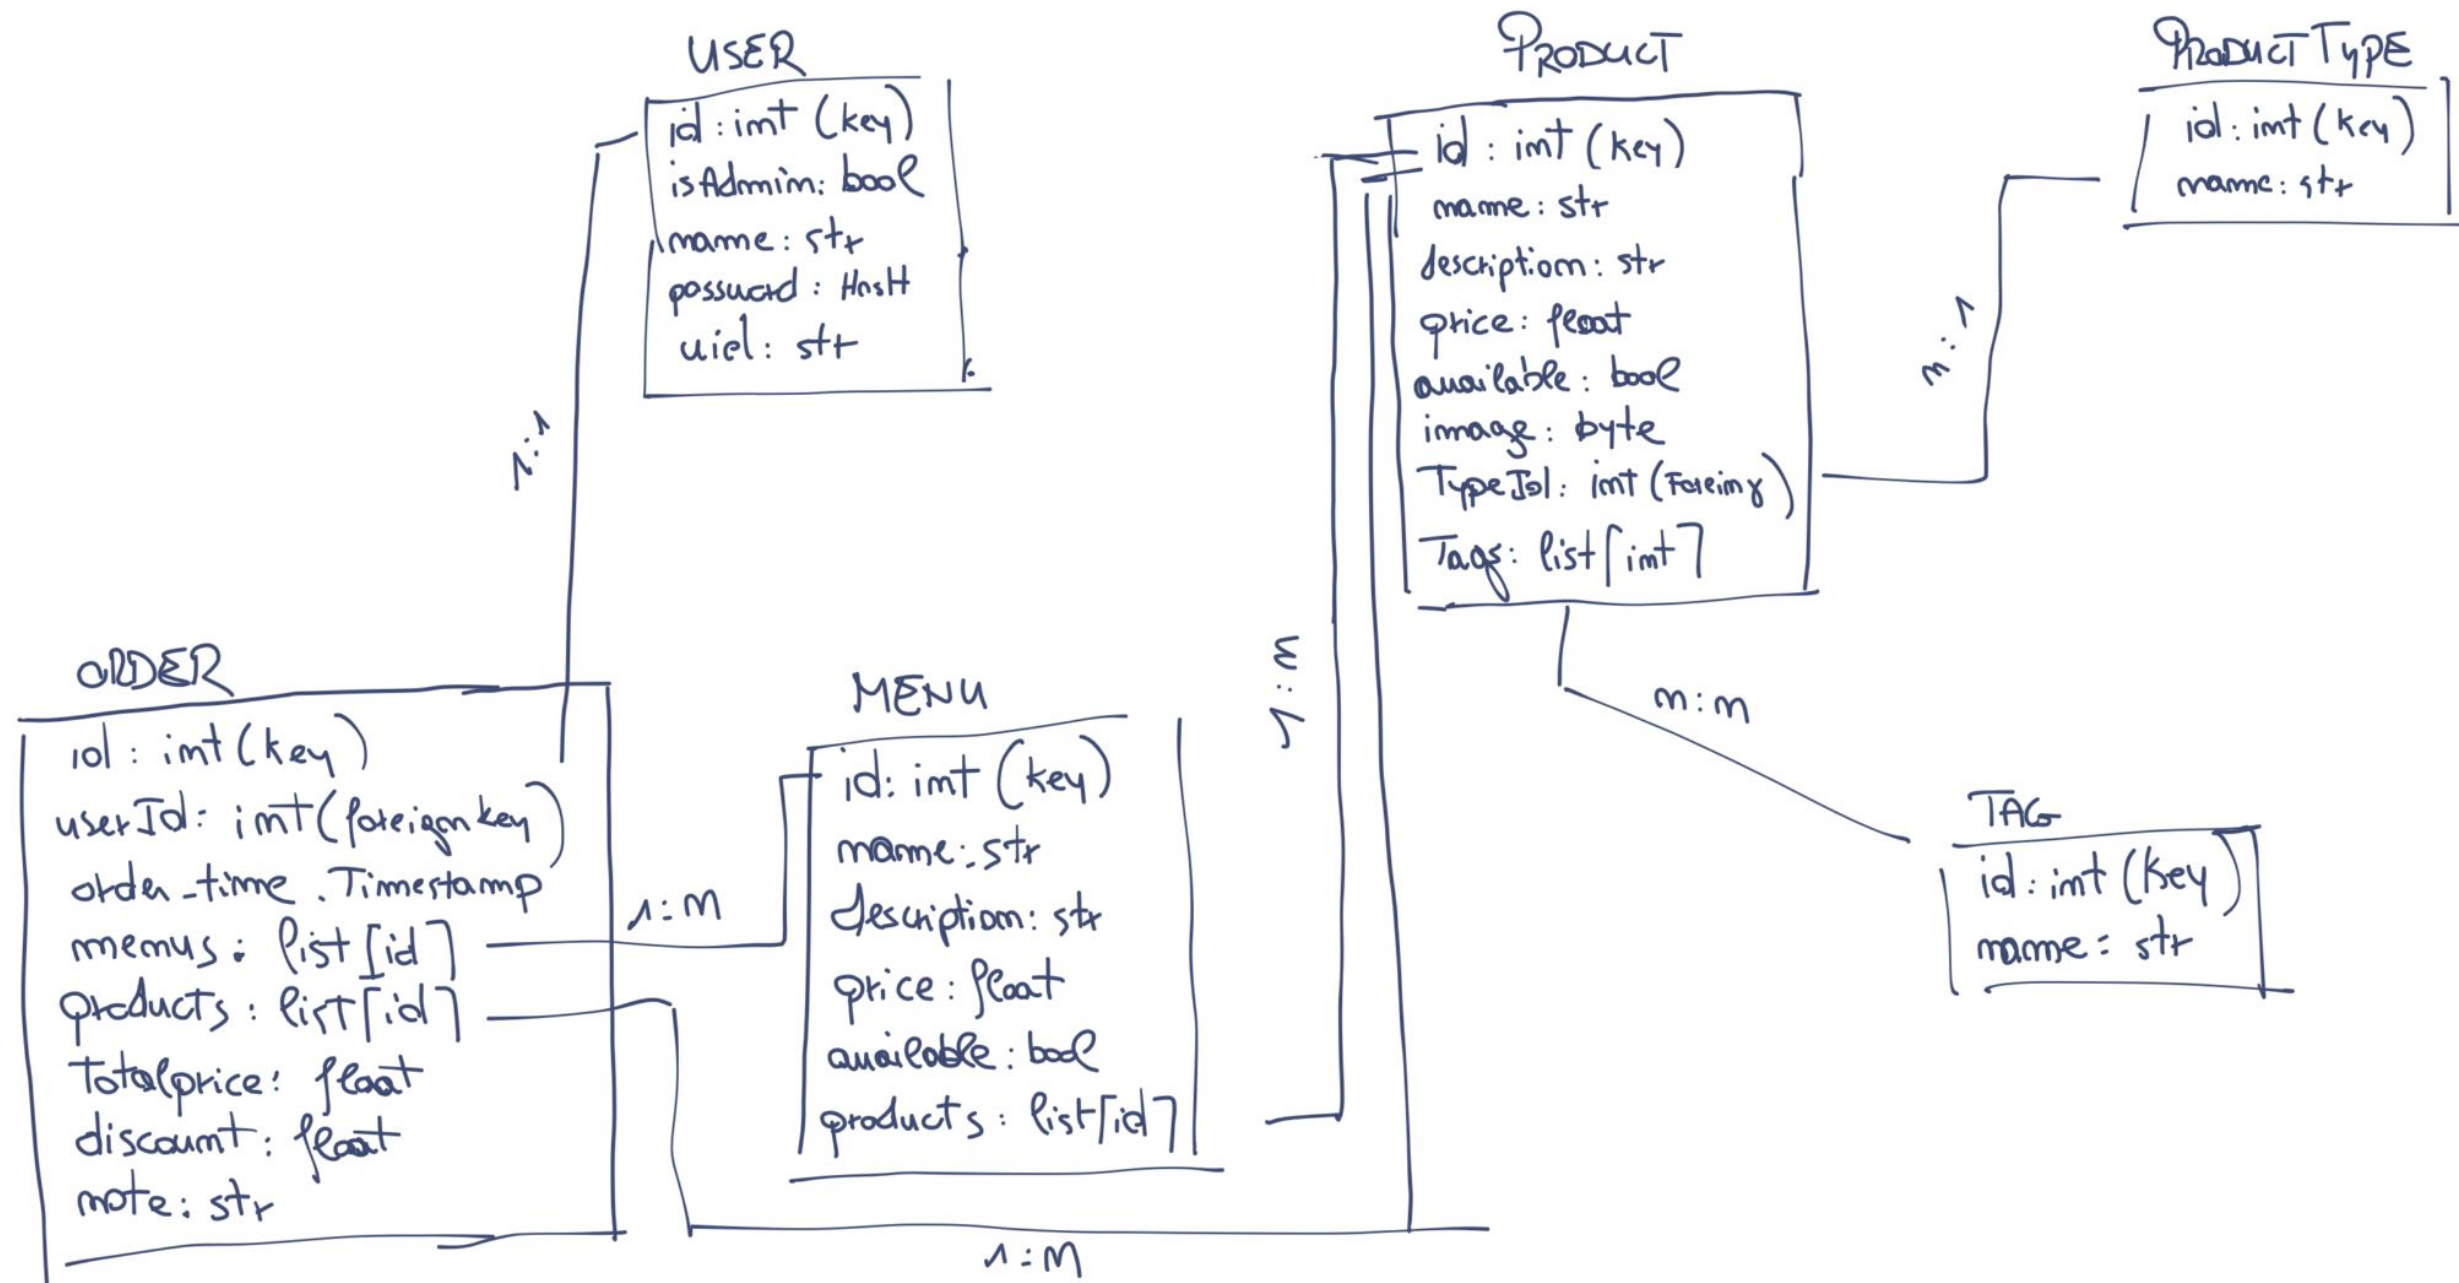 USER
id: int (key)
isAdmin: bool
name: str
password: HasH
uid: str
1:1
PRODUCT
id: int (key)
name: str
description: str
price: float
available: bool
image: byte
TypeId: int (Foreing)
Tags: list[int]
PRODUCT TYPE
id: int (key)
name: str
m:1
ORDER
id: int (key)
userId: int (foreign key)
order_time: Timestamp
menus: list[id]
products: list[id]
Totalprice: float
discount: float
note: str
1:M
MENU
id: int (key)
name: str
description: str
price: float
available: bool
products: list[id]
1:m
m:m
TAG
id: int (key)
name: str
1:M